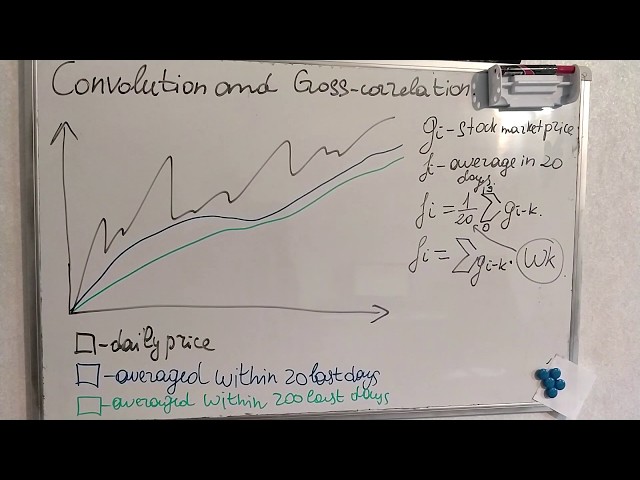 Convolution and Cross-correlation
gi-stock market price
fi-average in 20
days.
fi = 1/20 19∑0 gi-k.
fi = ∑gi-k · Wk
-daily price
-averaged within 20 last days
-averaged within 200 last days